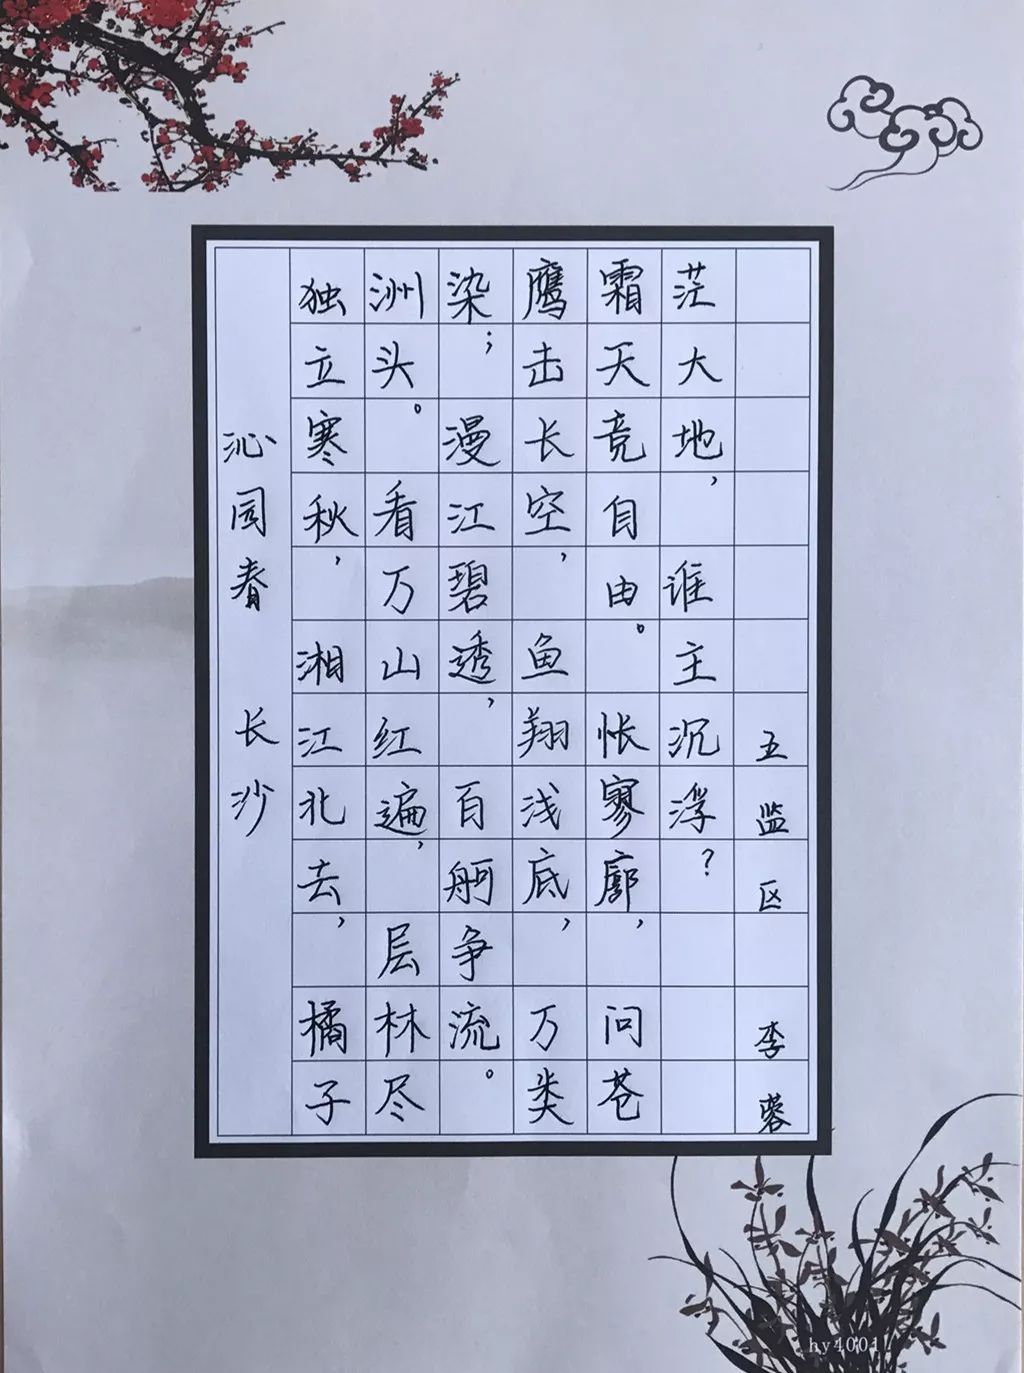 沁园春 长沙
独立寒秋，湘江北去，橘子
洲头。看万山红遍，层林尽
染；漫江碧透，百舸争流。
鹰击长空，鱼翔浅底，万类
霜天竞自由。怅寥廓，问苍
茫大地，谁主沉浮？
五监区 李蓉
hy4001